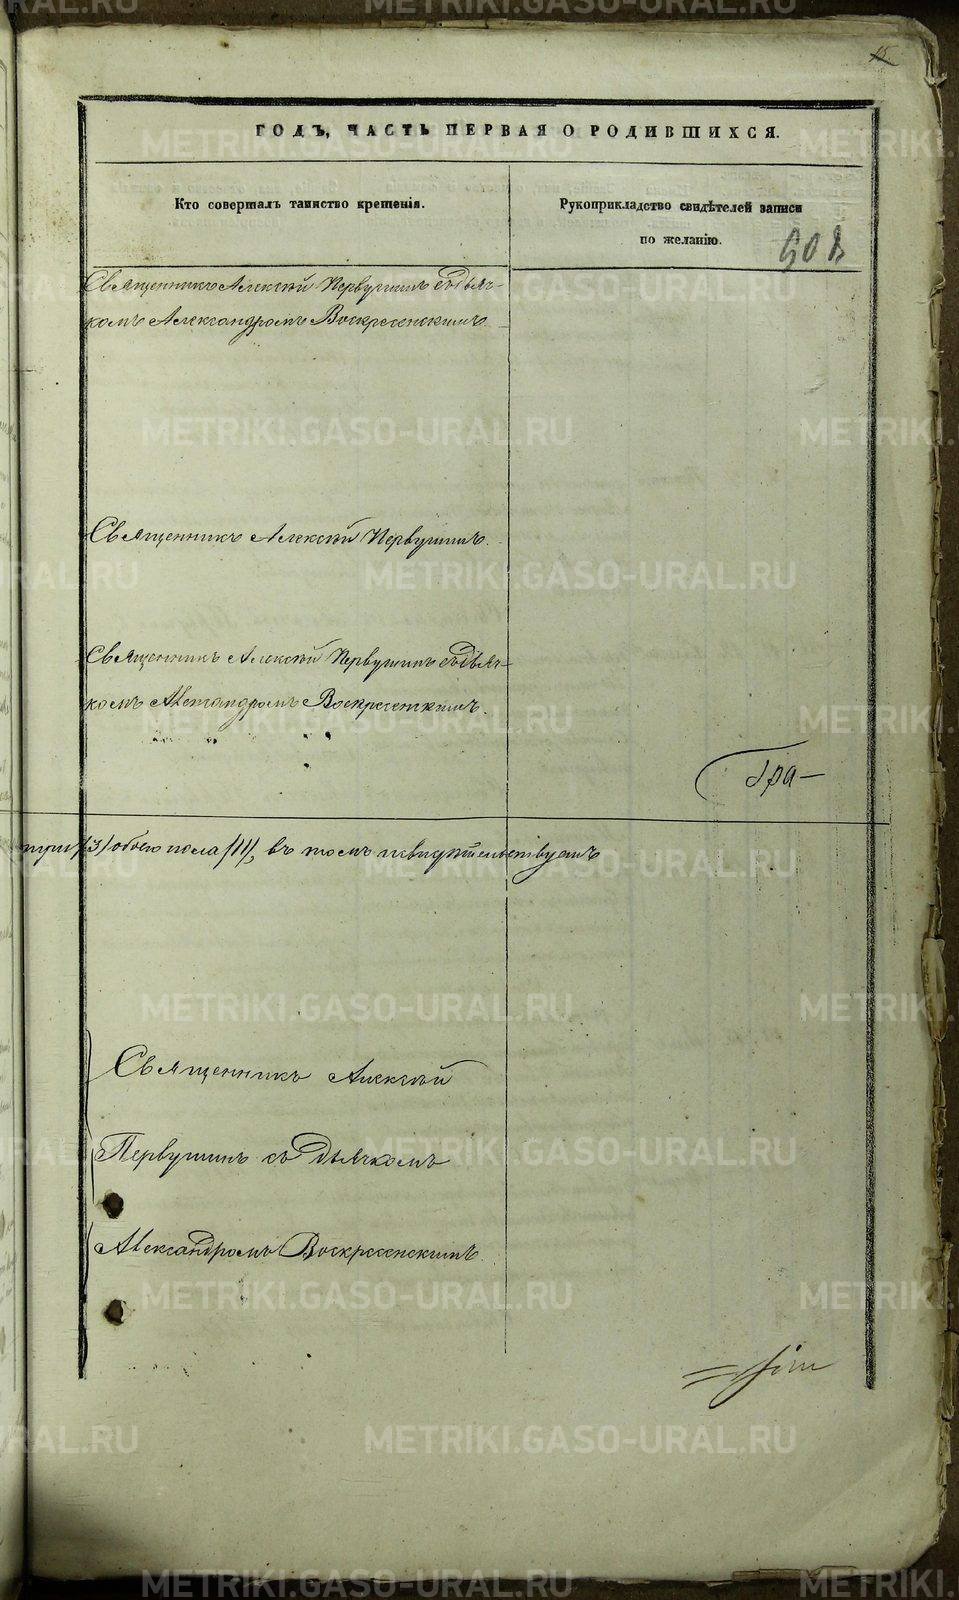 15
ГОДЪ, ЧАСТЬ ПЕРВАЯ О РОДИВШИХСЯ.
Кто совершалъ таинство крещенія.
Рукоприкладство свидѣтелей записи
по желанію.
Священникъ Алексѣй Первушинъ съ дьяч-
комъ Александромъ Воскресенскимъ.
Священникъ Алексѣй Первушинъ.
Священникъ Алексѣй Первушинъ съ дьяч-
комъ Александромъ Воскресенскимъ.
Гра-
три /3/ обоего пола /11/, въ томъ и свидѣтельствуемъ
Священникъ Алексѣй
Первушинъ съ дьячкомъ
Александромъ Воскресенскимъ.
METRIKI.GASO-URAL.RU